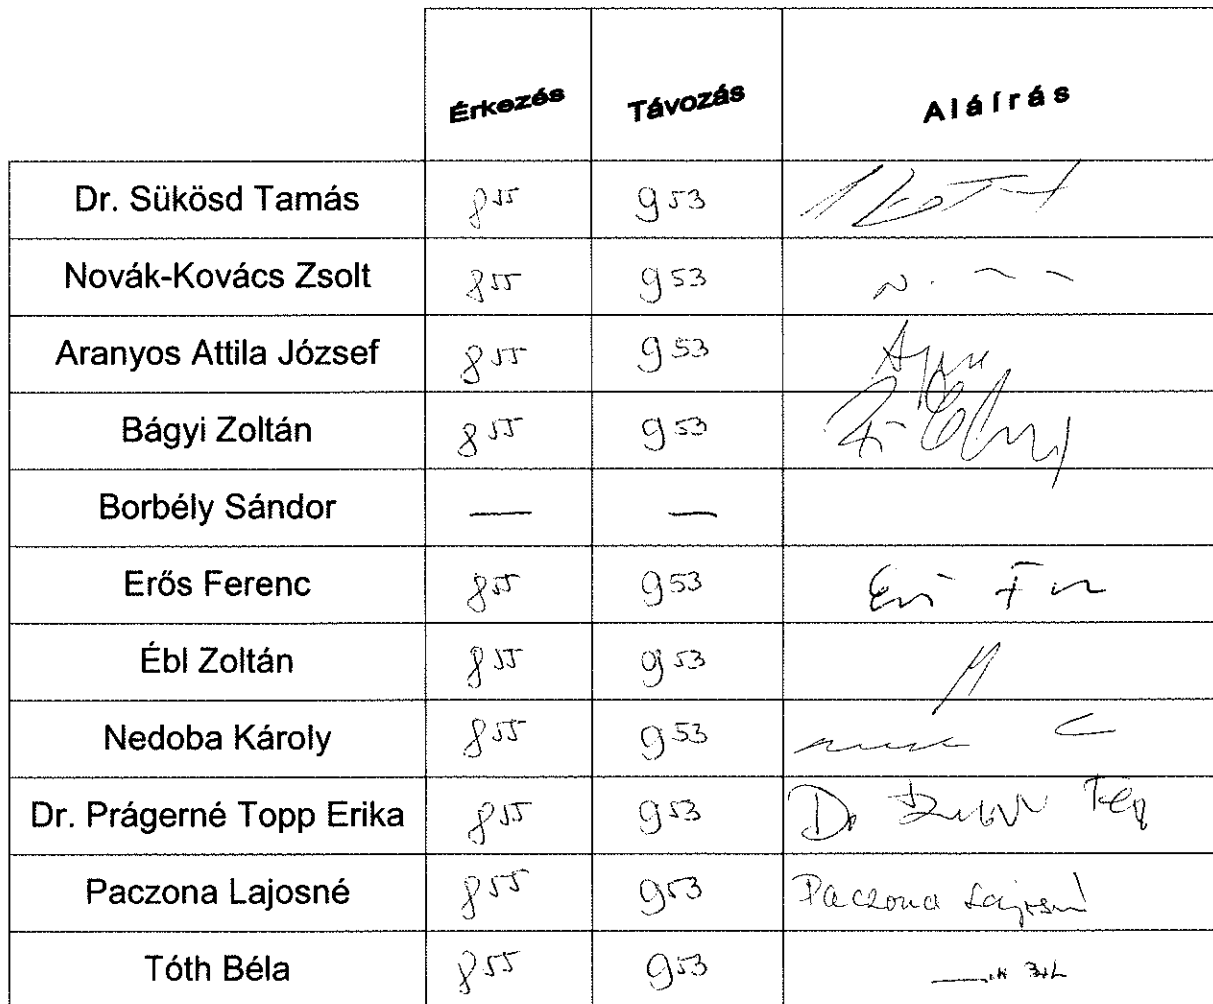 Érkezés Távozás Aláírás
Dr. Sükösd Tamás 8 55 9 53
Novák-Kovács Zsolt 8 55 9 53
Aranyos Attila József 8 55 9 53
Bágyi Zoltán 8 55 9 53
Borbély Sándor — —
Erős Ferenc 8 55 9 53
Ébl Zoltán 8 55 9 53
Nedoba Károly 8 55 9 53
Dr. Prágerné Topp Erika 8 55 9 53 Dr
Paczona Lajosné 8 55 9 53 Paczona Lajosné
Tóth Béla 8 55 9 53